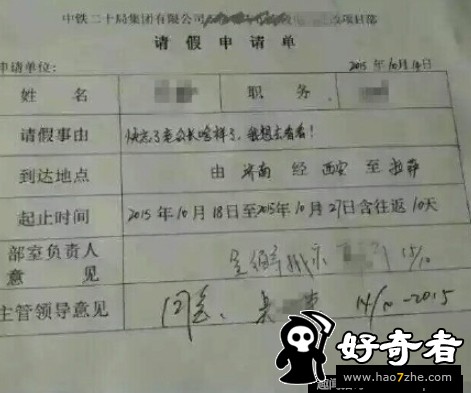 中铁二十局集团有限公司 项目部
请假申请单
申请单位： 2015年10月14日
姓名 职务
请假事由 快忘了老公长啥样了，我想去看看！
到达地点 由 济南 经 西安 至 拉萨
起止时间 2015年10月18日至2015年10月27日含往返10天
部室负责人
意见 15/10
主管领导意见 同意、 14/10-2015
好奇者
www.hao7zhe.com